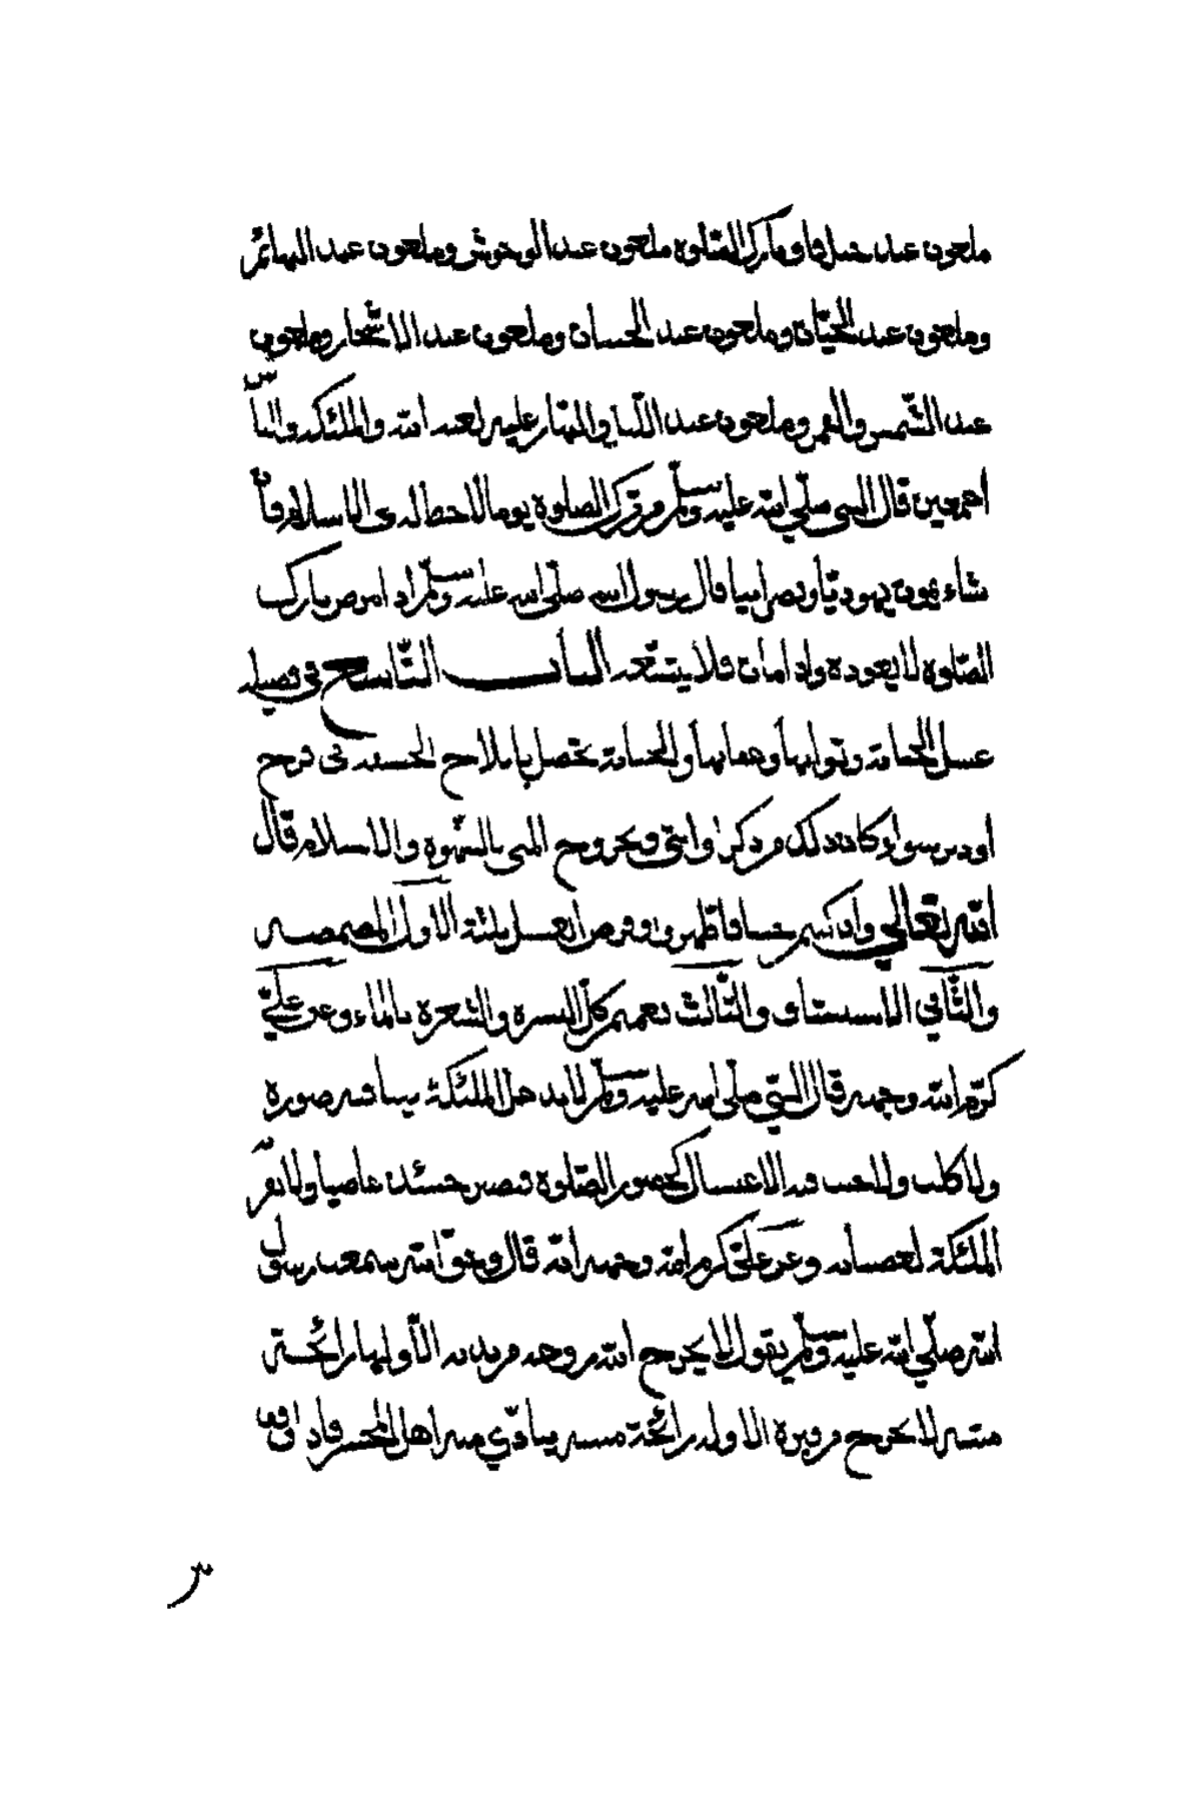 ملعون عند جبل قاو تارك الصلوة ملعون عند الوحوش وملعون عند البهائم
وملعون عند الحيتان وملعون عند الحسبان وملعون عند الاشجار وملعون
عند الشمس والقمر وملعون عند الليل والنهار عليه لعنة الله والملئكة والناس
اجمعين قال النبي صلى الله عليه وسلم من ترك الصلوة يوما لا حظ له في الاسلام فان
شاء يموت يهوديا ونصرانيا قال رسول الله صلى الله عليه وسلم اذا مرض تارك
الصلوة لا يعوده واذا مات فلا يشيعه الباب التاسع في فضيلة
غسل الجنابة وثوابها وعقابها والجنابة تحصل بايلاج الحشفة في فرج
او دبر سواء كان ذلك من ذكر او انثى وبخروج المنى بالشهوة والاسلام قال
الله تعالى وان كنتم جنبا فاطهروا وفرض الغسل ثلثة الاول المضمضة
والثاني الاستنشاق والثالث تعميم كل البشرة والشعرة بالماء وعن علي
كرم الله وجهه قال النبي صلى الله عليه وسلم لا يدخل الملئكة بيتا فيه صورة
ولا كلب ولا جنب فيه الاغتسال لحضور الصلوة فيصير حينئذ عاصيا ولا تقر
الملئكة لعصيانه وعن علي كرم الله وجهه انه قال وحق الله سمعت رسول
الله صلى الله عليه وسلم يقول لا يخرج الله من وجهه من بدنه الا ولها رائحة
منتنة لا يخرج من قبره الا وله رائحة منتنة يتأذى منه اهل المحشر فاذا